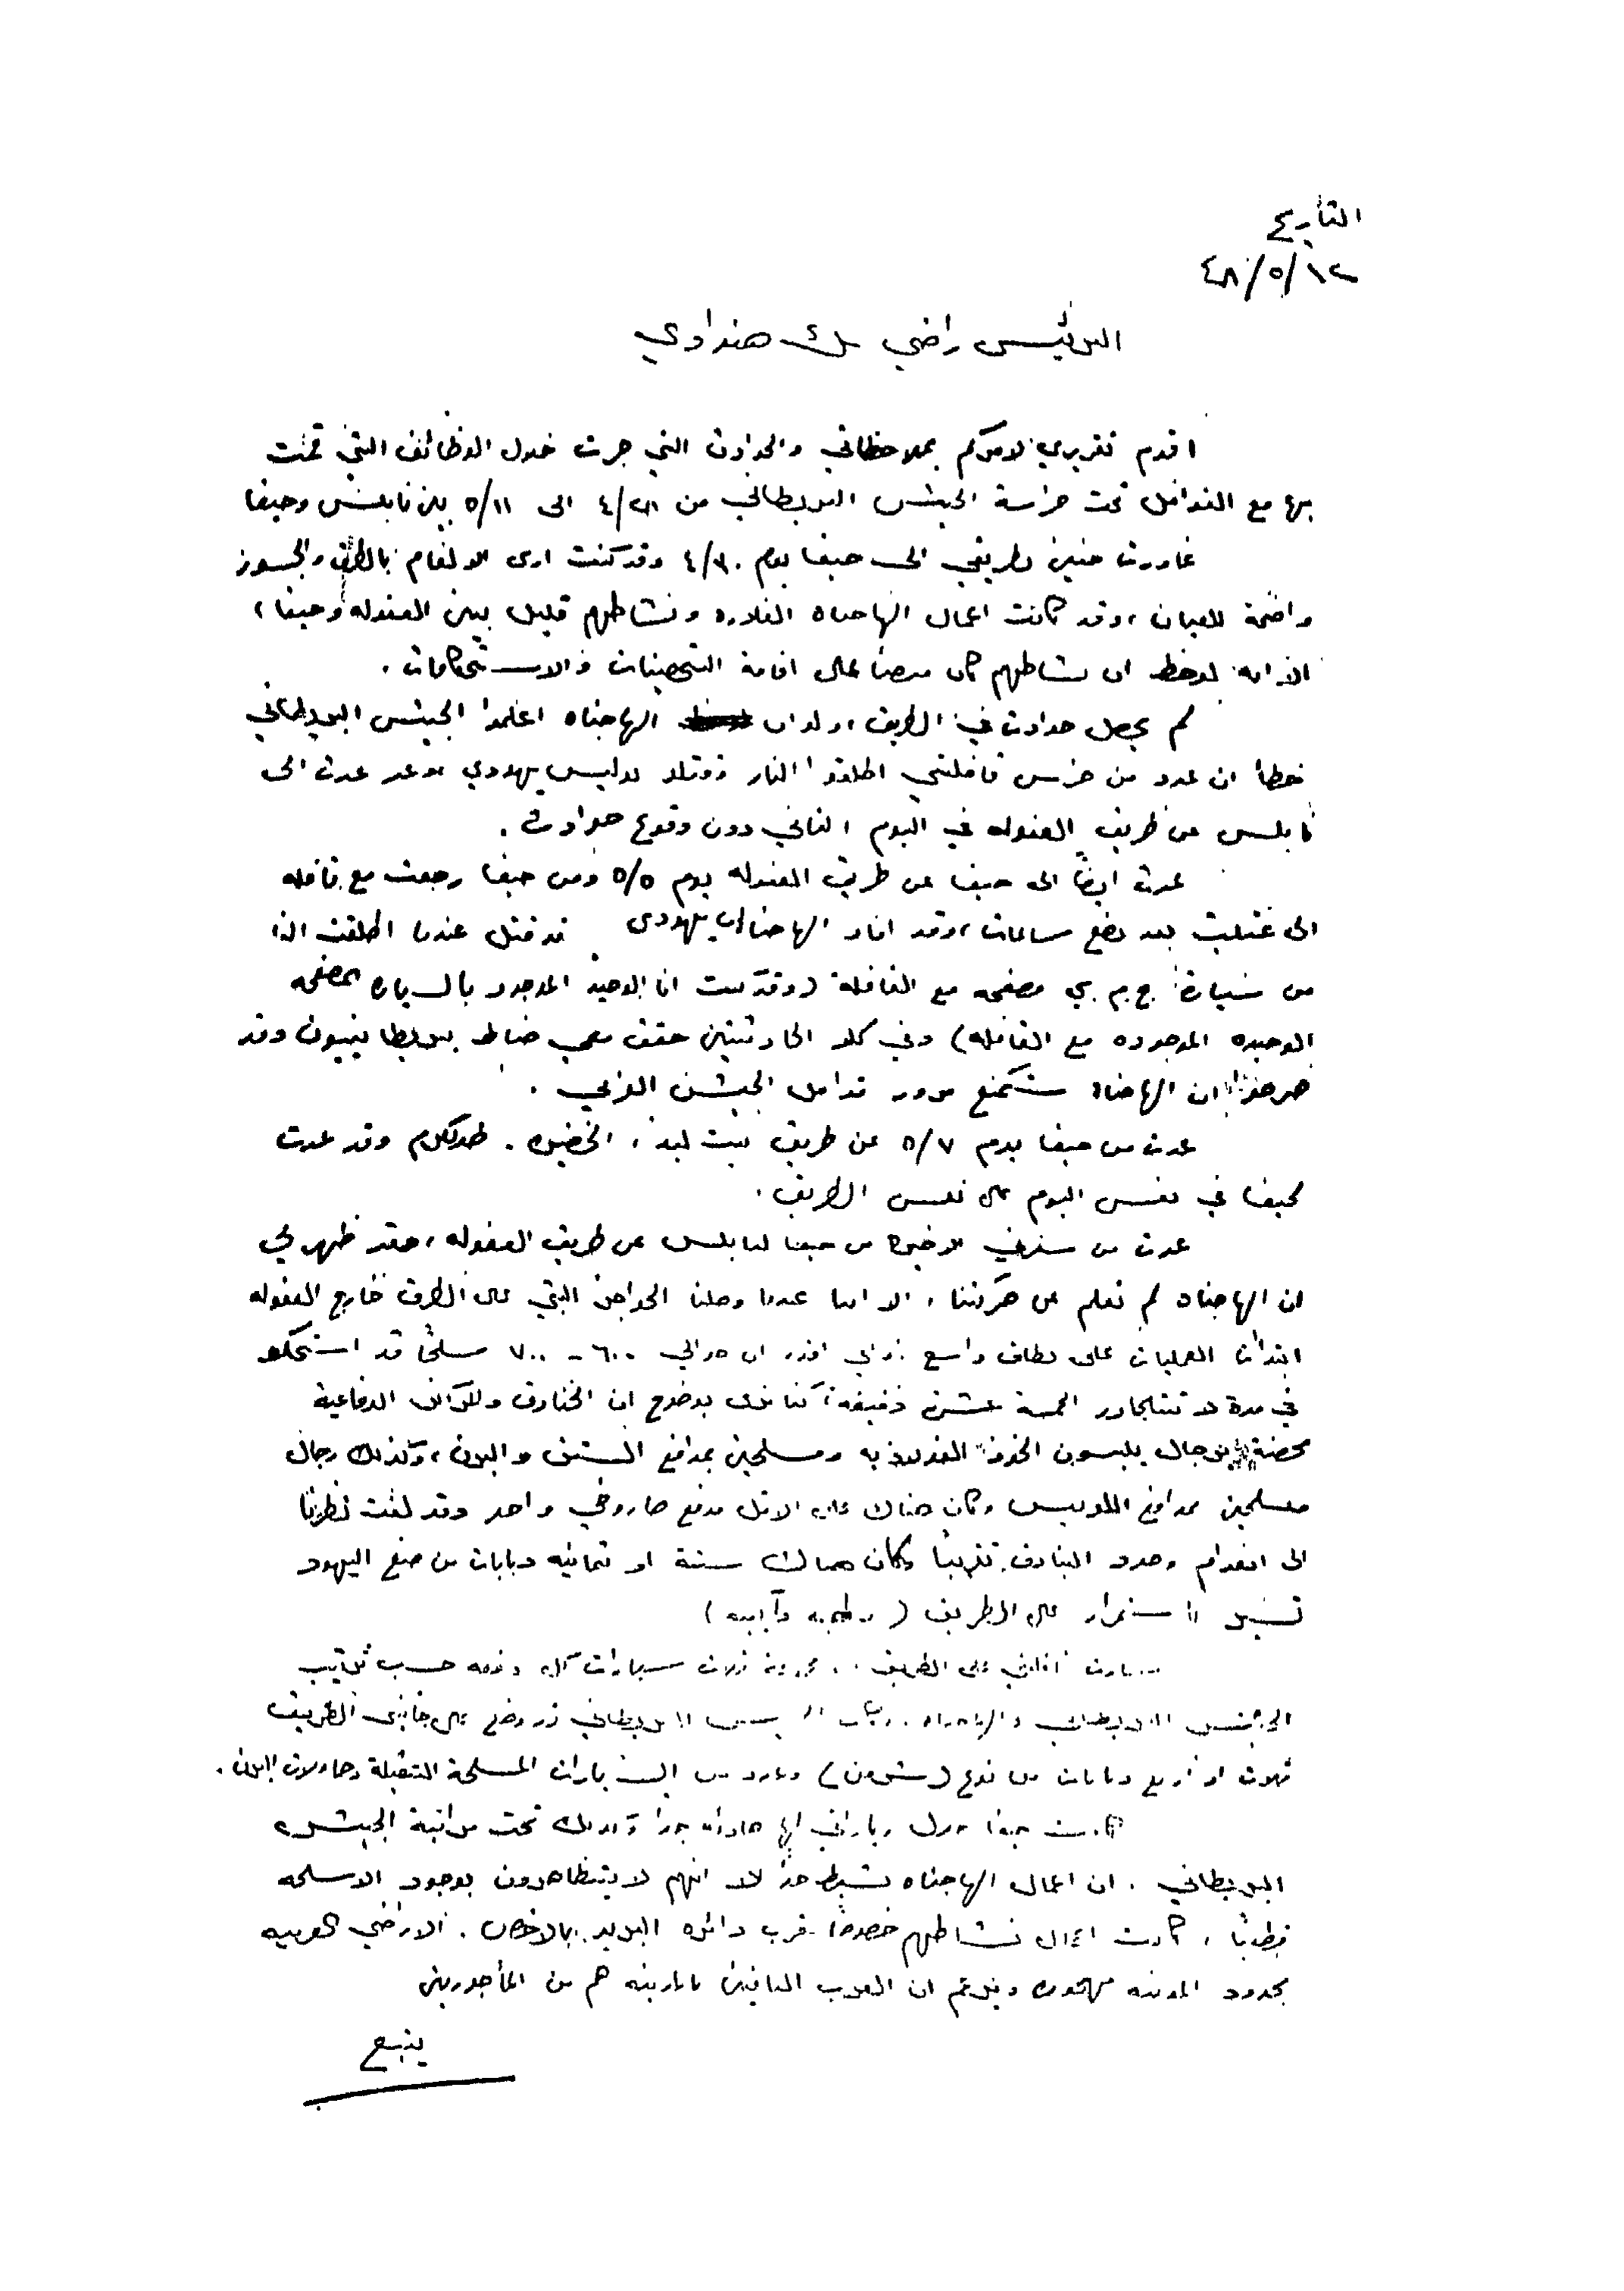 التأريخ
٤٨/٥/١٢
الرئيس راضي بك هنداوي
اقدم تقريري لامركم بملاحظاتي والحوادث التي جرت خلال الوظائف التي قمت
بها مع القوافل تحت حراسة الجيش البريطاني من ٤/٢٨ الى ٥/١١ بين نابلس وحيفا
غادرت جنين بطريقي الى حيفا يوم ٤/٣٠ وقد كنت ارى الالغام بالطرق والجسور
واضحة للعيان ، وقد كانت اعمال الهاجناه ونشاطهم قليل بين العفوله وحيفا ،
الا انه لوحظ ان نشاطهم كان على اقامة التحصينات والاستحكامات .
لم يحصل حوادث في الطريق ، ولو ان الهاجناه اعلموا الجيش البريطاني
خطأ ان عدد من حرس قافلتي اطلقوا النار وقتلو بوليس يهودي وقد عدت الى
نابلس عن طريق العفوله في اليوم الثاني دون وقوع حوادث .
عدت ايضاً الى حيفا عن طريق العفوله يوم ٥/٥ ومن حيفا رجعت مع قافله
الى بعد بضع ساعات ، وقد افاد الهاجناه ان يهودي قد قتل عندما اطلقت النار
من سيارة ج.م.سي مصفحه مع القافلة (وقد كنت انا الوحيد الموجود بالسياره المصفحه
الوحيده الموجوده مع القافله) وفي كلا الحادثتين حقق معي ضباط بريطانييون وقد
صرحوا ان الهاجناه ستمنع مرور قوافل الجيش العربي .
عدت من حيفا يوم ٥/٧ عن طريق بيت ليد ، الخضيره . طولكرم وقد عدت
لحيفا في نفس اليوم على نفس الطريق .
عدت من سفرتي الاخيره من حيفا لنابلس عن طريق العفوله ، فقد ظهر لي
ان الهاجناه لم تعلم عن حركتنا ، الا اننا عندما وصلنا الحواجز التي على الطرق خارج العفوله
ابتدأت العمليات على نطاق واسع اقدر ان حوالي ٦٠٠ - ٧٠٠ مسلحاً قد استحكمو
في مدة لا تتجاوز الخمسة عشرة دقيقة ، كنا نرى بوضوح ان الخنادق والمراكز الدفاعية
محصنة برجال يلبسون الخوذ الفولاذيه ومسلحين بمدافع الستن والبرن ، وكذلك رجال
مسلحين بمدافع اللويس وكان هناك على الاقل مدفع صاروخي واحد وقد لفت نظرنا
الى انعدام وجود البنادق تقريباً وكان هناك ستة او ثمانيه دبابات من صنع اليهود
تسير باستمرار على الطريق ( )
على الطريق ثلاث سيارات حسب ترتيب
الجيش البريطاني والهاجناه . وكان الجيش البريطاني قد وضع على جانبي الطريق
ثلاث او اربع دبابات من نوع (ستون) وعدد من السيارات المسلحة الثقيلة وحاملات البرن .
كانت حيفا خلال زيارتي لها هادئه جداً تحت مراقبة الجيش
البريطاني . ان اعمال الهاجناه نشيطه جداً الا انهم لا يتظاهرون بوجود الاسلحه
قطعياً ، كانت اعمال نشاطهم خصوصاً قرب دائرة البريد بالاخص . الاراضي العربيه
بحدود المدينه مهجوره ويزعم ان العرب الباقين بالمدينه هم من المأجورين
يتبع